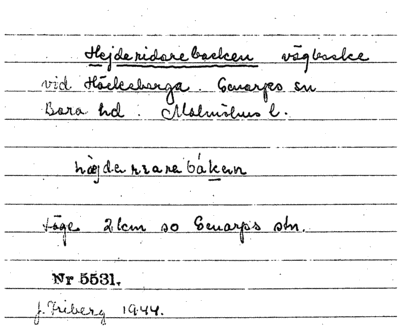 Hejderidarebacken vägbacke
vid Häckeberga. Genarps sn
Bara hd. Malmöhus l.
häjderrarebákenn
Läge 2 km so Genarps stn.
Nr 5531.
J. Friberg 1944.